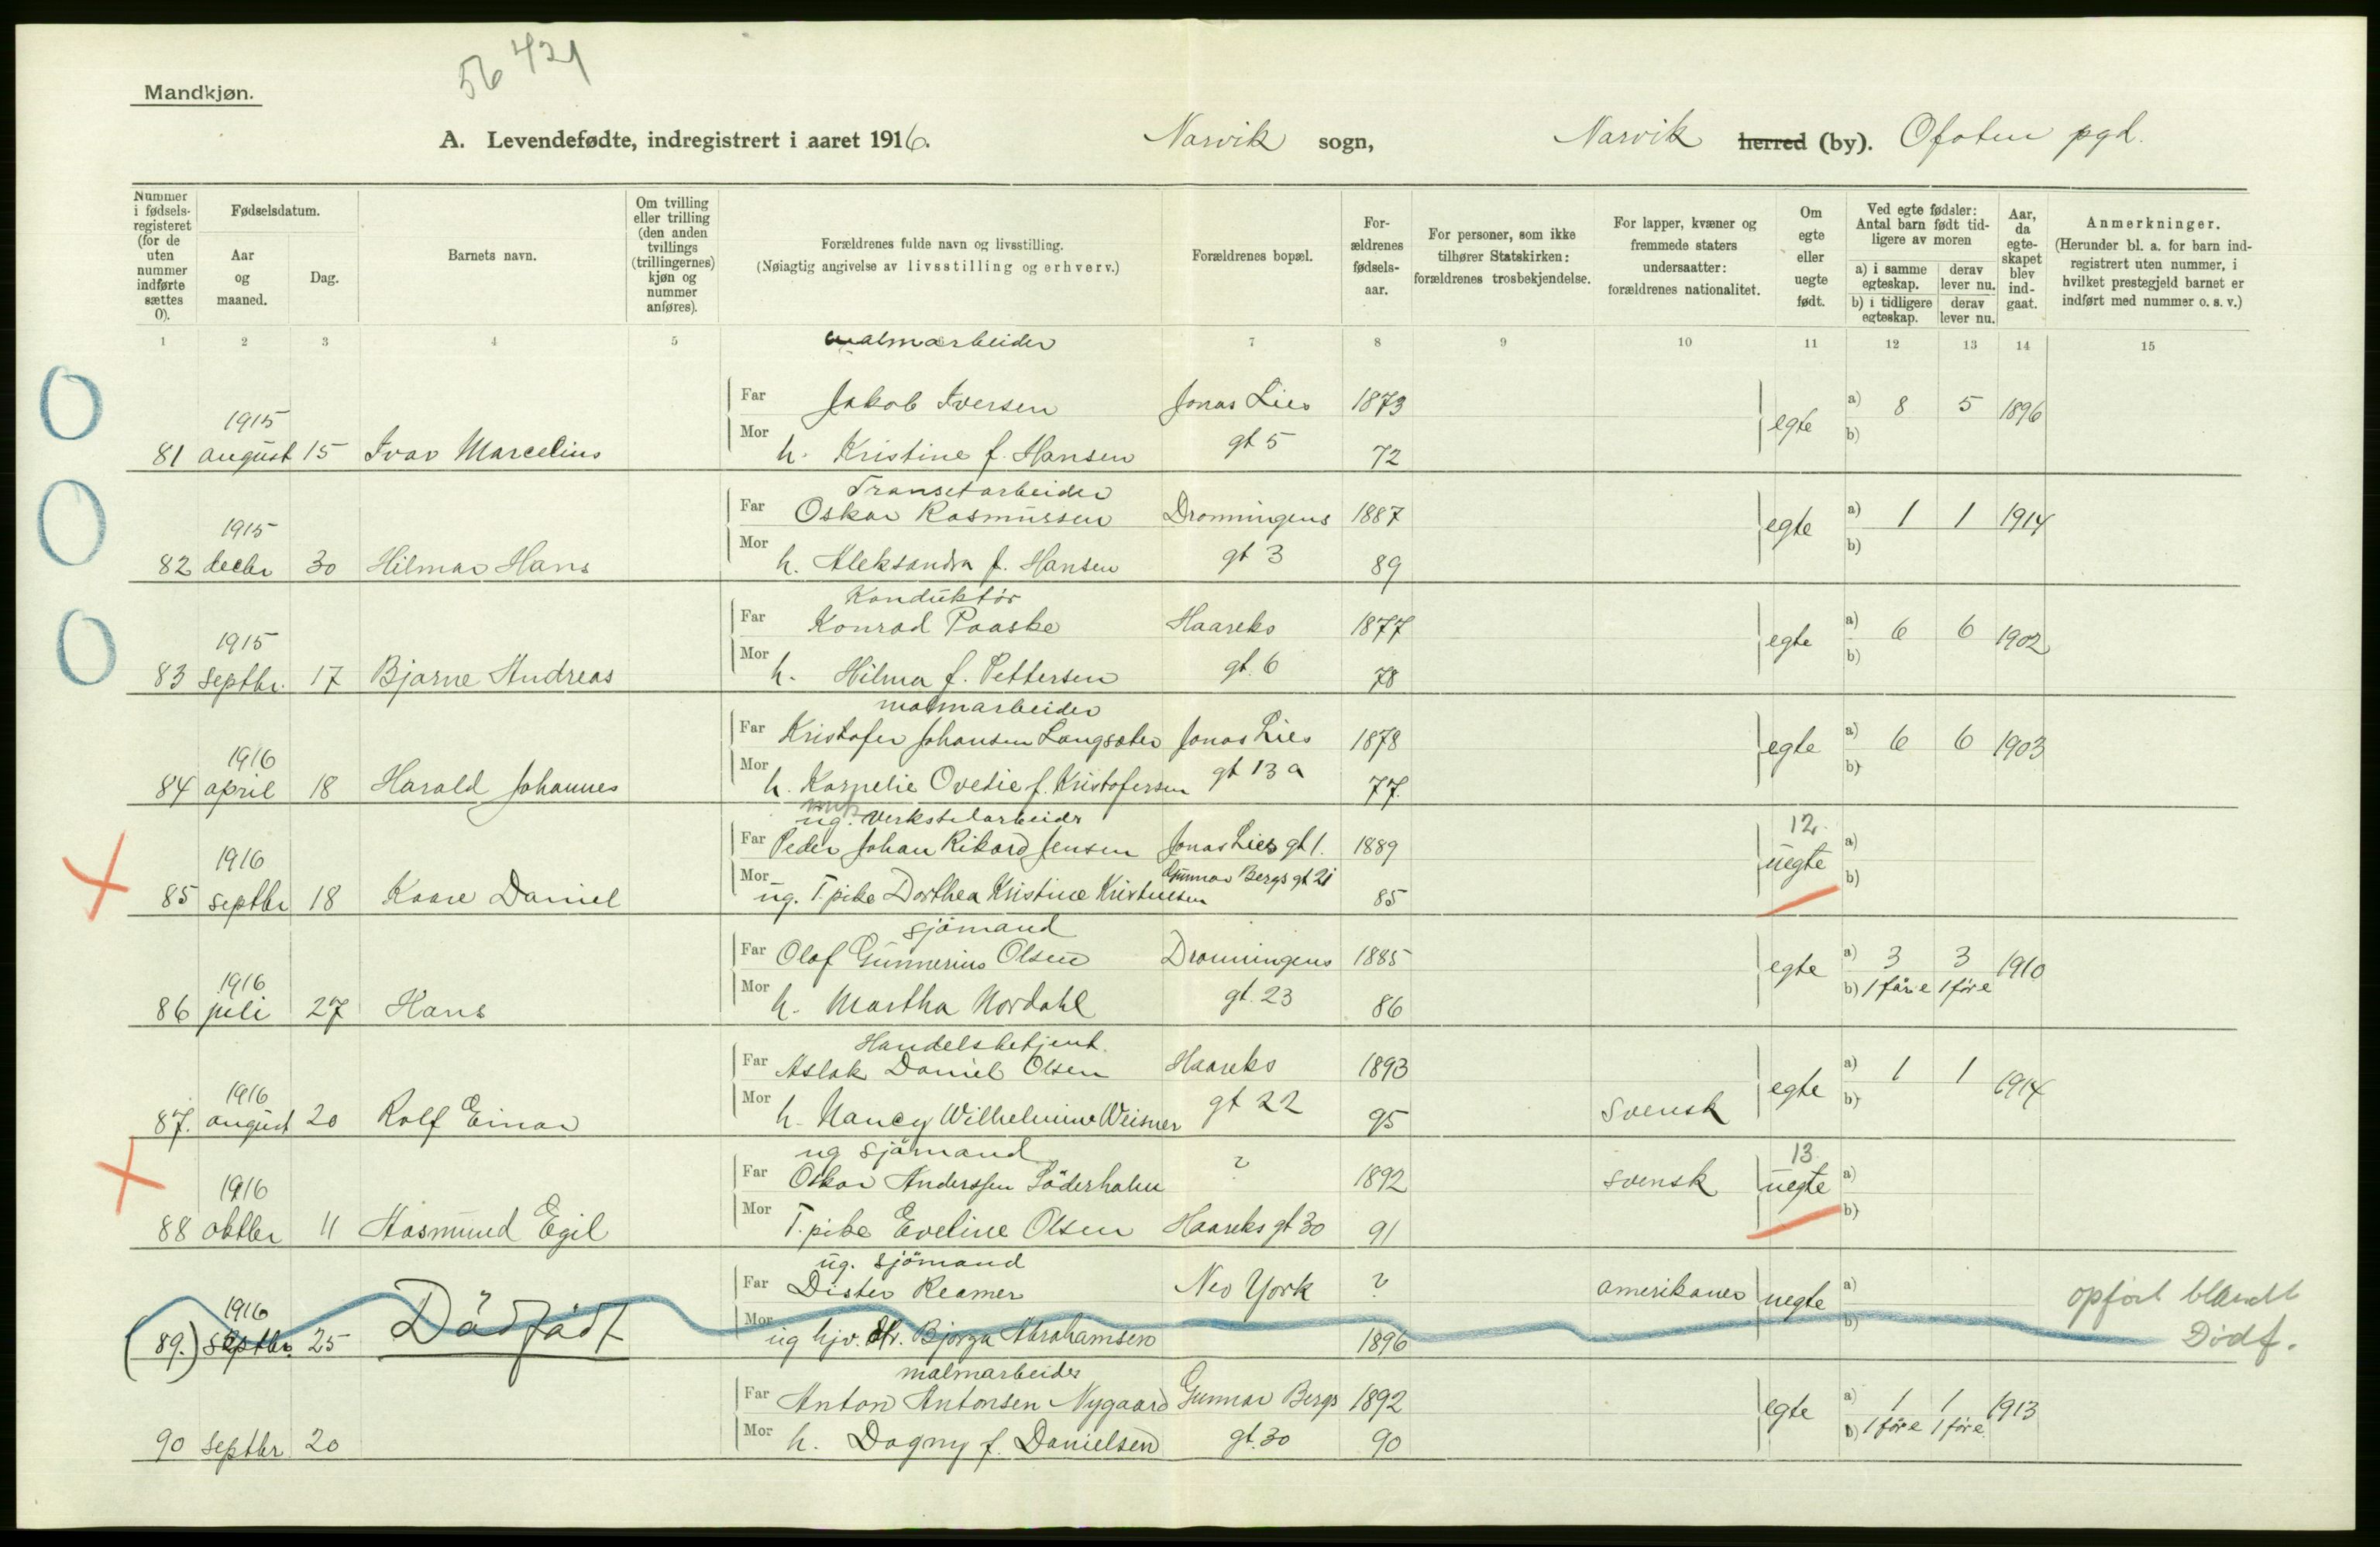 56 421
Mandkjøn.
A. Levendefødte, indregistrert i aaret 1916. Narvik sogn, Narvik herred (by). Ofoten pgd.
Nummer i fødsels-registeret (for de uten nummer indførte sættes 0).
Fødselsdatum.
Aar og maaned.
Dag.
Barnets navn.
Om tvilling eller trilling (den anden tvillings (trillingernes) kjøn og nummer anføres).
Forældrenes fulde navn og livsstilling.
(Nøiagtig angivelse av livsstilling og erhverv.)
Forældrenes bopæl.
For-ældrenes fødsels-aar.
For personer, som ikke tilhører Statskirken: forældrenes trosbekjendelse.
For lapper, kvæner og fremmede staters undersaatter: forældrenes nationalitet.
Om egte eller uegte født.
Ved egte fødsler: Antal barn født tid-ligere av moren
a) i samme egteskap. derav lever nu.
b) i tidligere egteskap. derav lever nu.
Aar, da egte-skapet blev ind-gaat.
Anmerkninger.
(Herunder bl. a. for barn ind-registrert uten nummer, i hvilket prestegjeld barnet er indført med nummer o. s. v.)
1 2 3 4 5 7 8 9 10 11 12 13 14 15
malmarbeider
Far Jakob Iversen Jonas Lies 1873 a) 8 5 1896
1915 egte
Mor h. Kristine f. Hansen gt 5 72 b)
81 august 15 Ivar Marcelius
Transetarbeider
Far Oskar Rasmussen Dronningens 1887 a) 1 1 1914
1915 egte
Mor h. Aleksandra f. Hansen gt 3 89 b)
82 decbr 30 Hilmar Hans
Konduktör
Far Konrad Paaske Haareks 1877 a) 6 6 1902
1915 egte
Mor h. Hilma f. Pettersen gt. 6 78 b)
83 septbr. 17 Bjarne Andreas
malmarbeider
Far Kristofer Johansen Langsæter Jonas Lies 1878 a) 6 6 1903
1916 egte
Mor h. Kornelie Ovedie f. Kristofersen gt 13 a 77. b)
84 april 18 Harald Johannes
ug. verkstedarbeidr 12.
Far Peder Johan Rikard Jensen Jonas Lies gt 1. 1889 a)
1916 uegte
Mor ug. T. pike Dorthea Kristine Kristensen Gunnar Bergs gt 21 85 b)
85 septbr 18 Kaare Daniel
sjömand
Far Olaf Gunnerius Olsen Dronningens 1885 a) 3 3 1910
1916 egte
Mor h. Martha Nordahl gt. 23 86 b) 1 före 1 före
86 juli 27 Hans
Handelsbetjent.
Far Aslak Daniel Olsen Haareks 1893 a) 1 1 1914
1916 egte
Mor h. Nancy Wilhelmine Weisner gt 22 95 svensk b)
87. august 20 Rolf Einar
ug sjömand 13
Far Oskar Anderssen Söderholm ? 1892 svensk uegte a)
1916
Mor T. pike Eveline Olsen Haareks gt 30 91 b)
88 oktbr 11 Aasmund Egil
ug. sjömand
Far Dister Reamer Neo York ? amerikaner uegte a) opført blandt
1916
Mor ug hjv. Bjørga Abrahamsen 1896 b) Dødf.
(89.) septbr. 25 Dödfödt
malmarbeider
Far Anton Antonsen Nygaard Gunnar Bergs 1892 egte a) 1 1 1913
Mor h. Dagny f. Danielsen gt. 30 90 b) 1 före 1 före
90 septbr. 20